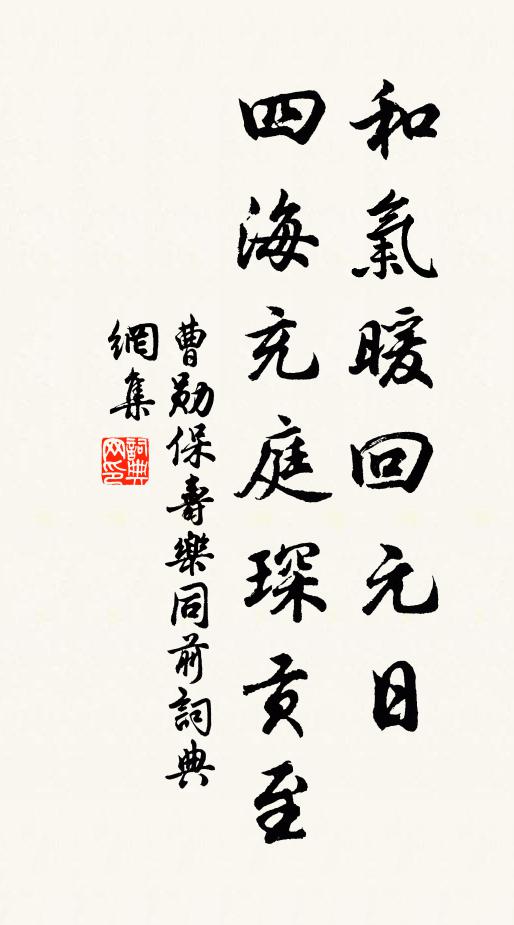 和氣暖回元日
四海充庭琛貢至
曹勛保壽樂同前詞典
網集
詞典網印